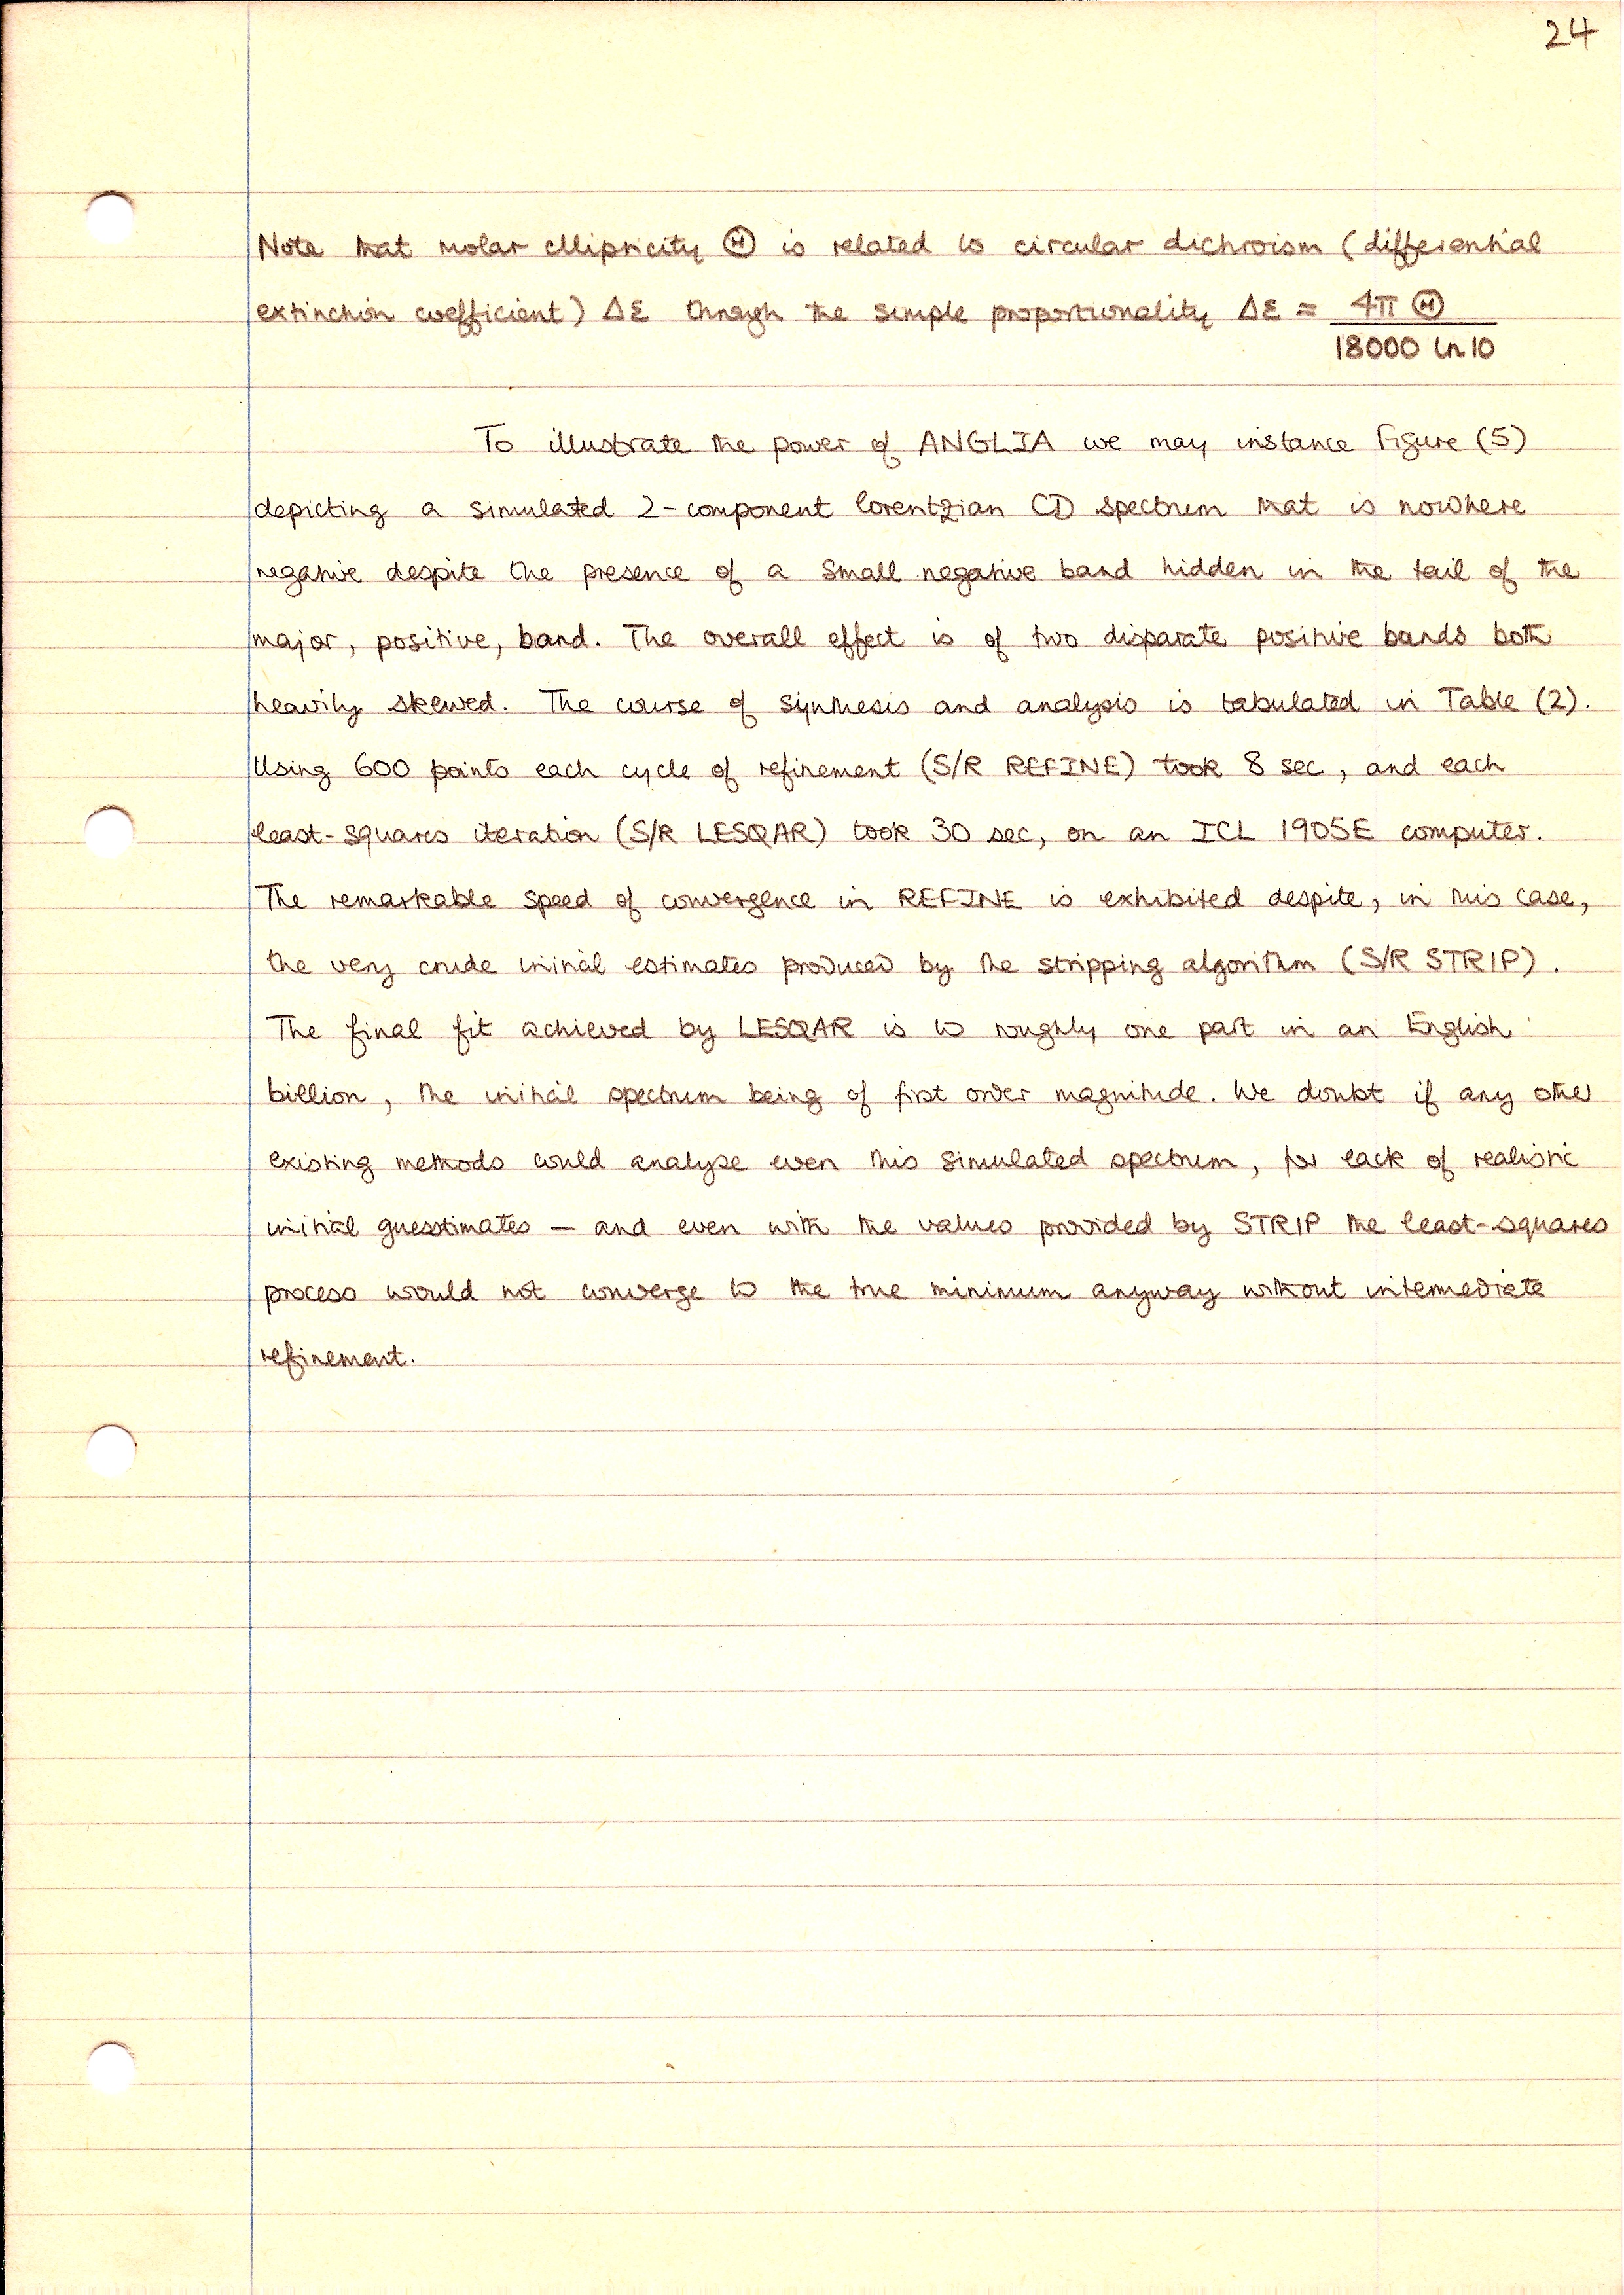 24
Note that molar ellipticity Ⓗ is related to circular dichroism (differential
extinction coefficient) Δε through the simple proportionality Δε = 4π Ⓗ / 18000 ln 10
To illustrate the power of ANGLIA we may instance Figure (5)
depicting a simulated 2-component Lorentzian CD spectrum that is nowhere
negative despite the presence of a small negative band hidden in the tail of the
major, positive, band. The overall effect is of two disparate positive bands both
heavily skewed. The course of synthesis and analysis is tabulated in Table (2).
Using 600 points each cycle of refinement (S/R REFINE) took 8 sec, and each
least-squares iteration (S/R LESQAR) took 30 sec, on an ICL 1905E computer.
The remarkable speed of convergence in REFINE is exhibited despite, in this case,
the very crude initial estimates produced by the stripping algorithm (S/R STRIP).
The final fit achieved by LESQAR is to roughly one part in an English
billion, the initial spectrum being of first order magnitude. We doubt if any other
existing methods could analyse even this simulated spectrum, for lack of realistic
initial guesstimates — and even with the values provided by STRIP the least-squares
process would not converge to the true minimum anyway without intermediate
refinement.